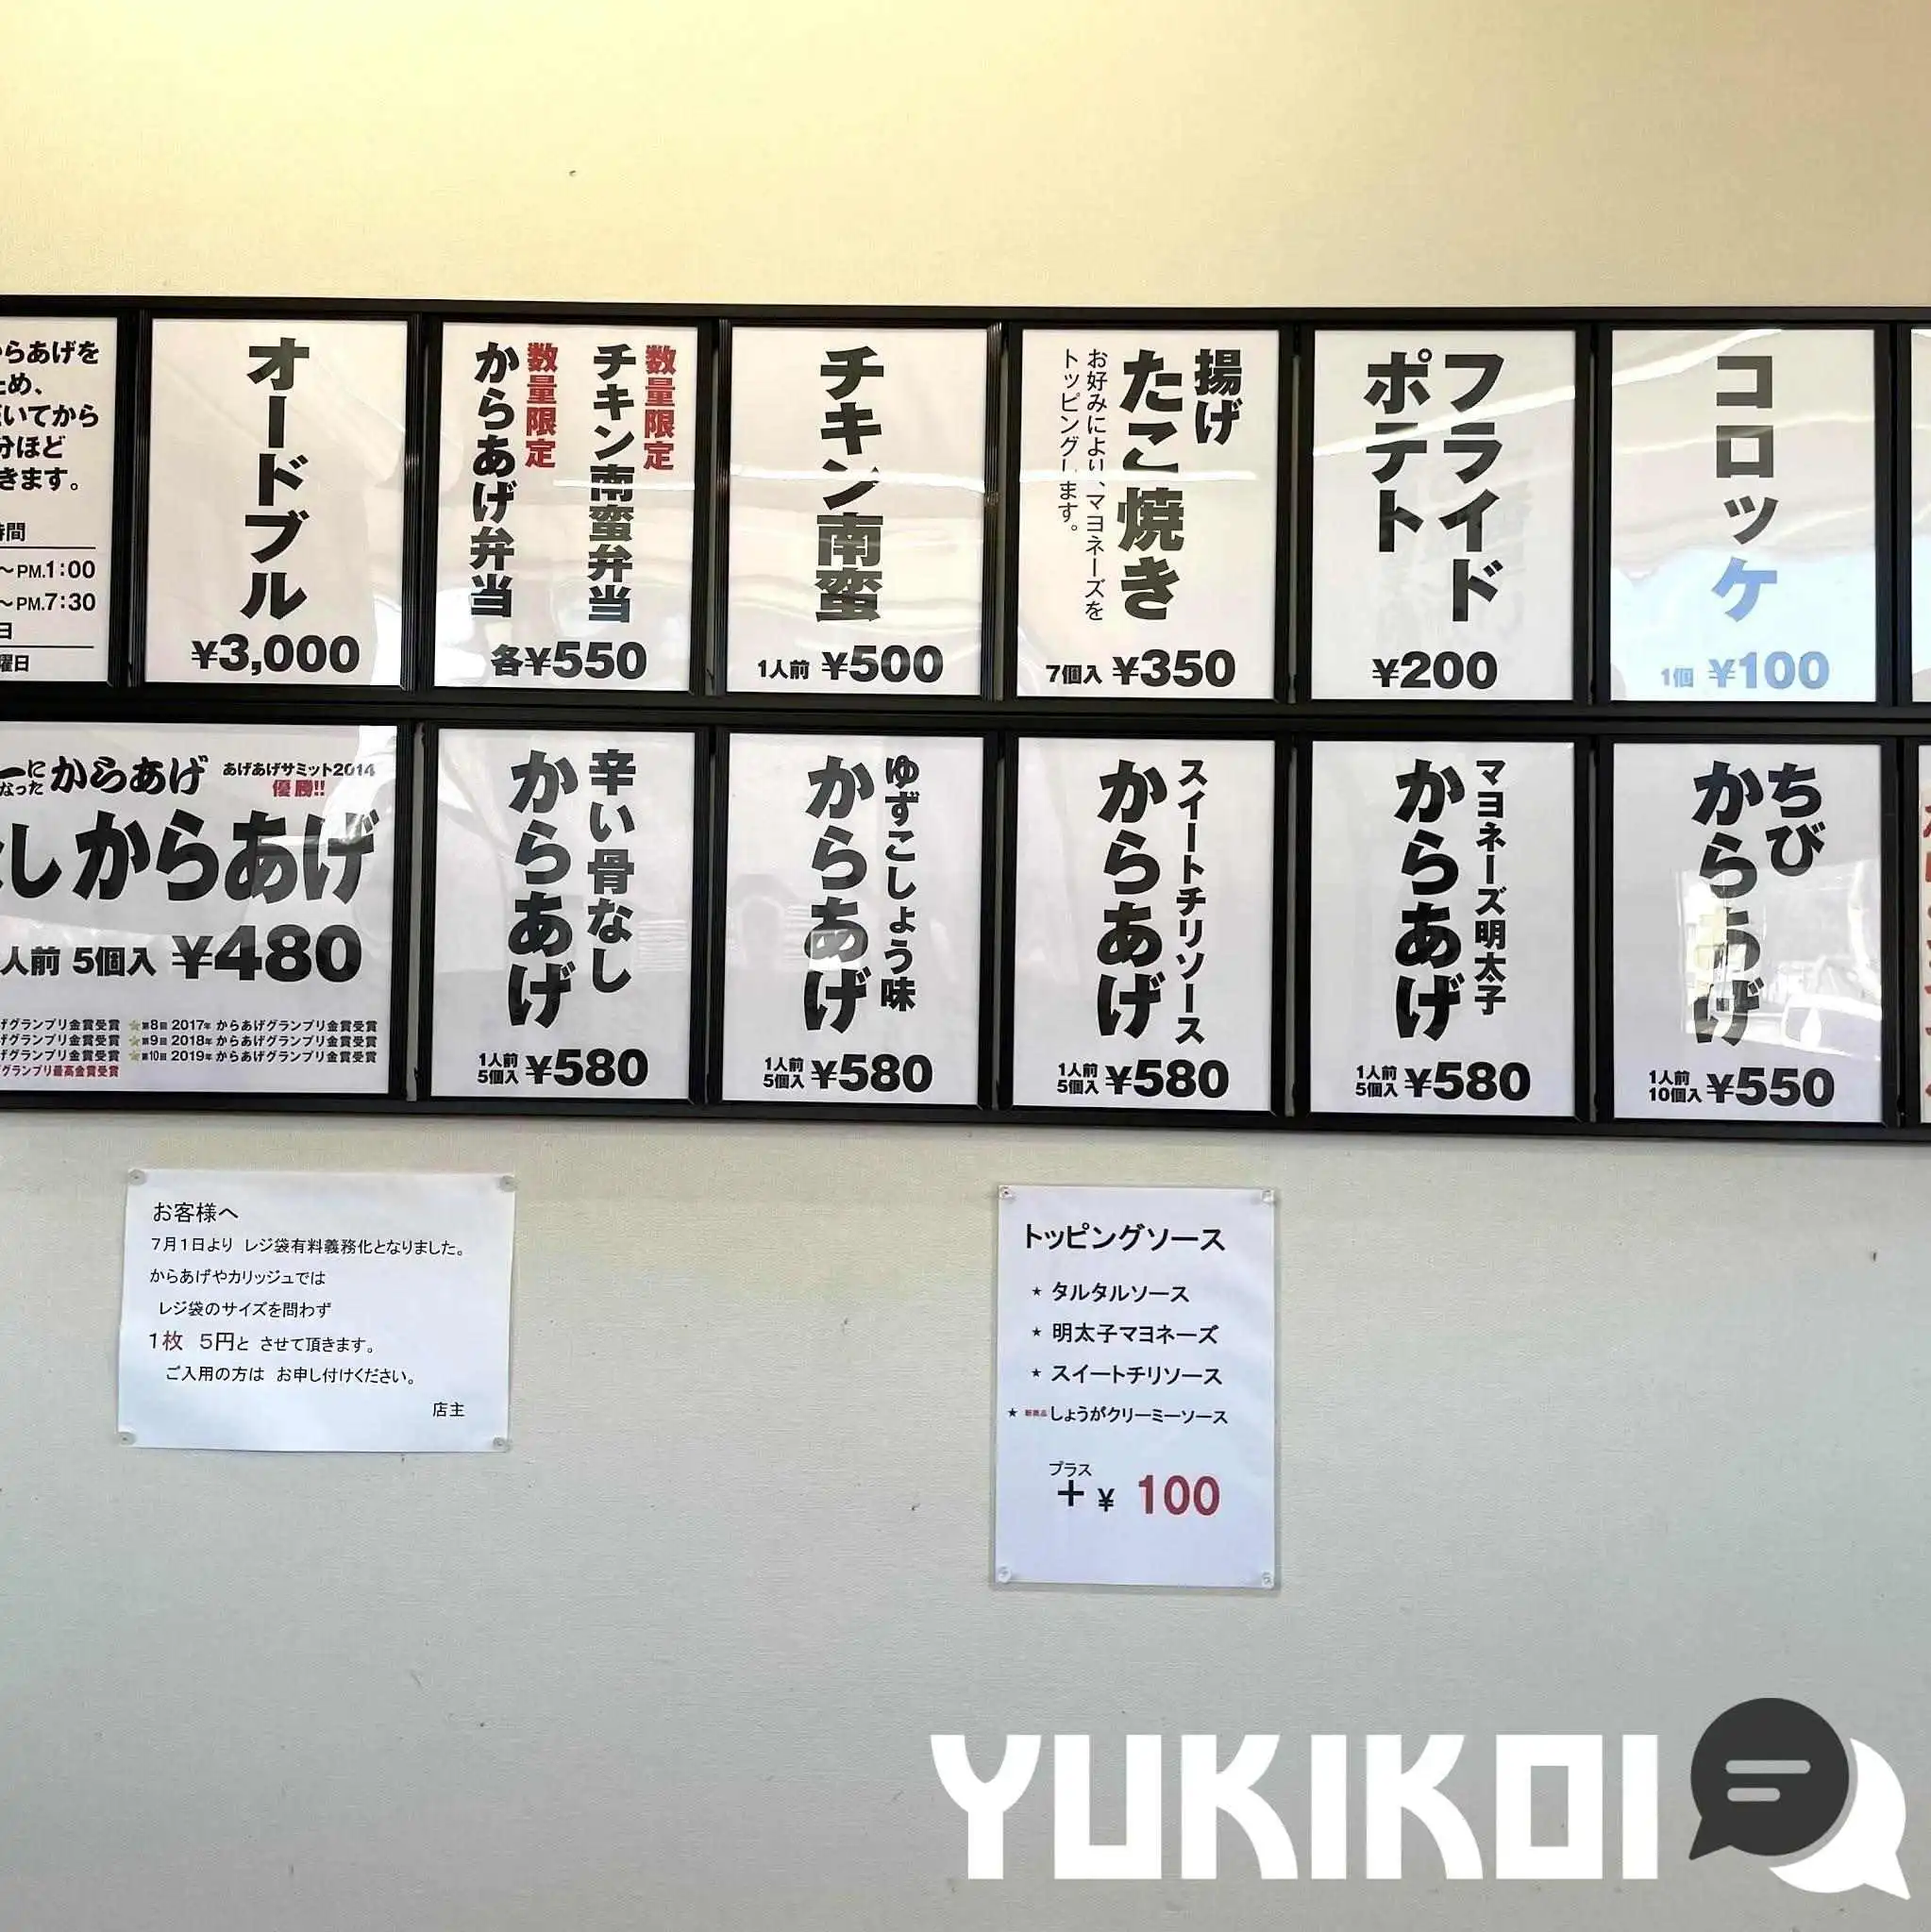 らあげを
ため、
いてから
分ほど
きます。
時間
～PM.1:00
～PM.7:30
日
曜日
オードブル
¥3,000
数量限定
チキン南蛮弁当
数量限定
からあげ弁当
各¥550
チキン南蛮
1人前 ¥500
揚げ
たこ焼き
お好みにより、マヨネーズを
トッピングします。
7個入 ¥350
フライド
ポテト
¥200
コロッケ
1個 ¥100
一に
なった
からあげ
あげあげサミット2014
優勝!!
しからあげ
人前 5個入 ¥480
げグランプリ金賞受賞 ★第8回 2017年 からあげグランプリ金賞受賞
げグランプリ金賞受賞 ★第9回 2018年 からあげグランプリ金賞受賞
げグランプリ金賞受賞 ★第10回 2019年 からあげグランプリ金賞受賞
グランプリ最高金賞受賞
辛い骨なし
からあげ
1人前
5個入 ¥580
ゆずこしょう味
からあげ
1人前
5個入 ¥580
スイートチリソース
からあげ
1人前
5個入 ¥580
マヨネーズ明太子
からあげ
1人前
5個入 ¥580
ちび
からあげ
1人前
10個入 ¥550
お客様へ
7月1日より レジ袋有料義務化となりました。
からあげやカリッジュでは
レジ袋のサイズを問わず
1枚 5円と させて頂きます。
ご入用の方は お申し付けください。
店主
トッピングソース
★ タルタルソース
★ 明太子マヨネーズ
★ スイートチリソース
★ 新商品 しょうがクリーミーソース
プラス
+ ¥ 100
YUKIKOI